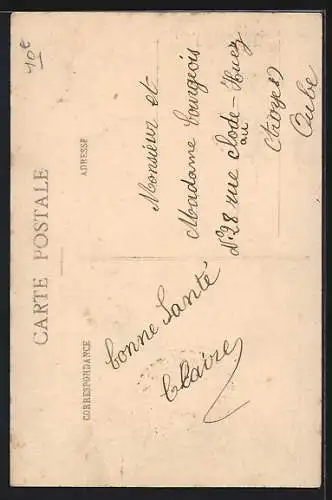 CARTE POSTALE
CORRESPONDANCE
ADRESSE
bonne Santé
Claire
Monsieur et
Madame bourgeois
N°28 rue clode-Huez
au
troyes
Aube